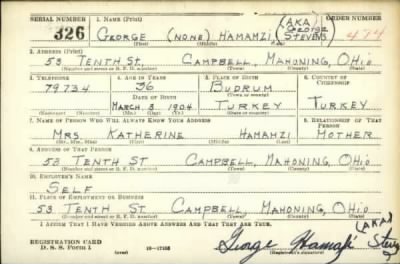 SERIAL NUMBER 1. NAME (Print) (AKA) ORDER NUMBER
326 GEORGE (NONE) HAMAMZI (GEORGE STEVENS) 474
(First) (Middle) (Last)
2. ADDRESS (Print)
53 TENTH ST. CAMPBELL, MAHONING, OHIO
(Number and street or R. F. D. number) (Town) (County) (State)
3. TELEPHONE 4. AGE IN YEARS 5. PLACE OF BIRTH 6. COUNTRY OF CITIZENSHIP
79734 36 BUDRUM
DATE OF BIRTH (Town or county)
MARCH 3 1904 TURKEY TURKEY
(Mo.) (Day) (Yr.) (State or country)
7. NAME OF PERSON WHO WILL ALWAYS KNOW YOUR ADDRESS 8. RELATIONSHIP OF THAT PERSON
MRS. KATHERINE HAMAMZI MOTHER
(Mr., Mrs., Miss) (First) (Middle) (Last)
9. ADDRESS OF THAT PERSON
53 TENTH ST CAMPBELL, MAHONING, OHIO
(Number and street or R. F. D. number) (Town) (County) (State)
10. EMPLOYER'S NAME
SELF
11. PLACE OF EMPLOYMENT OR BUSINESS
53 TENTH ST CAMPBELL MAHONING, OHIO
(Number and street or R. F. D. number) (Town) (County) (State)
I AFFIRM THAT I HAVE VERIFIED ABOVE ANSWERS AND THAT THEY ARE TRUE. (AKA)
REGISTRATION CARD George Hamamzi
D. S. S. Form 1 (over) 16—17105 (Registrant's signature)